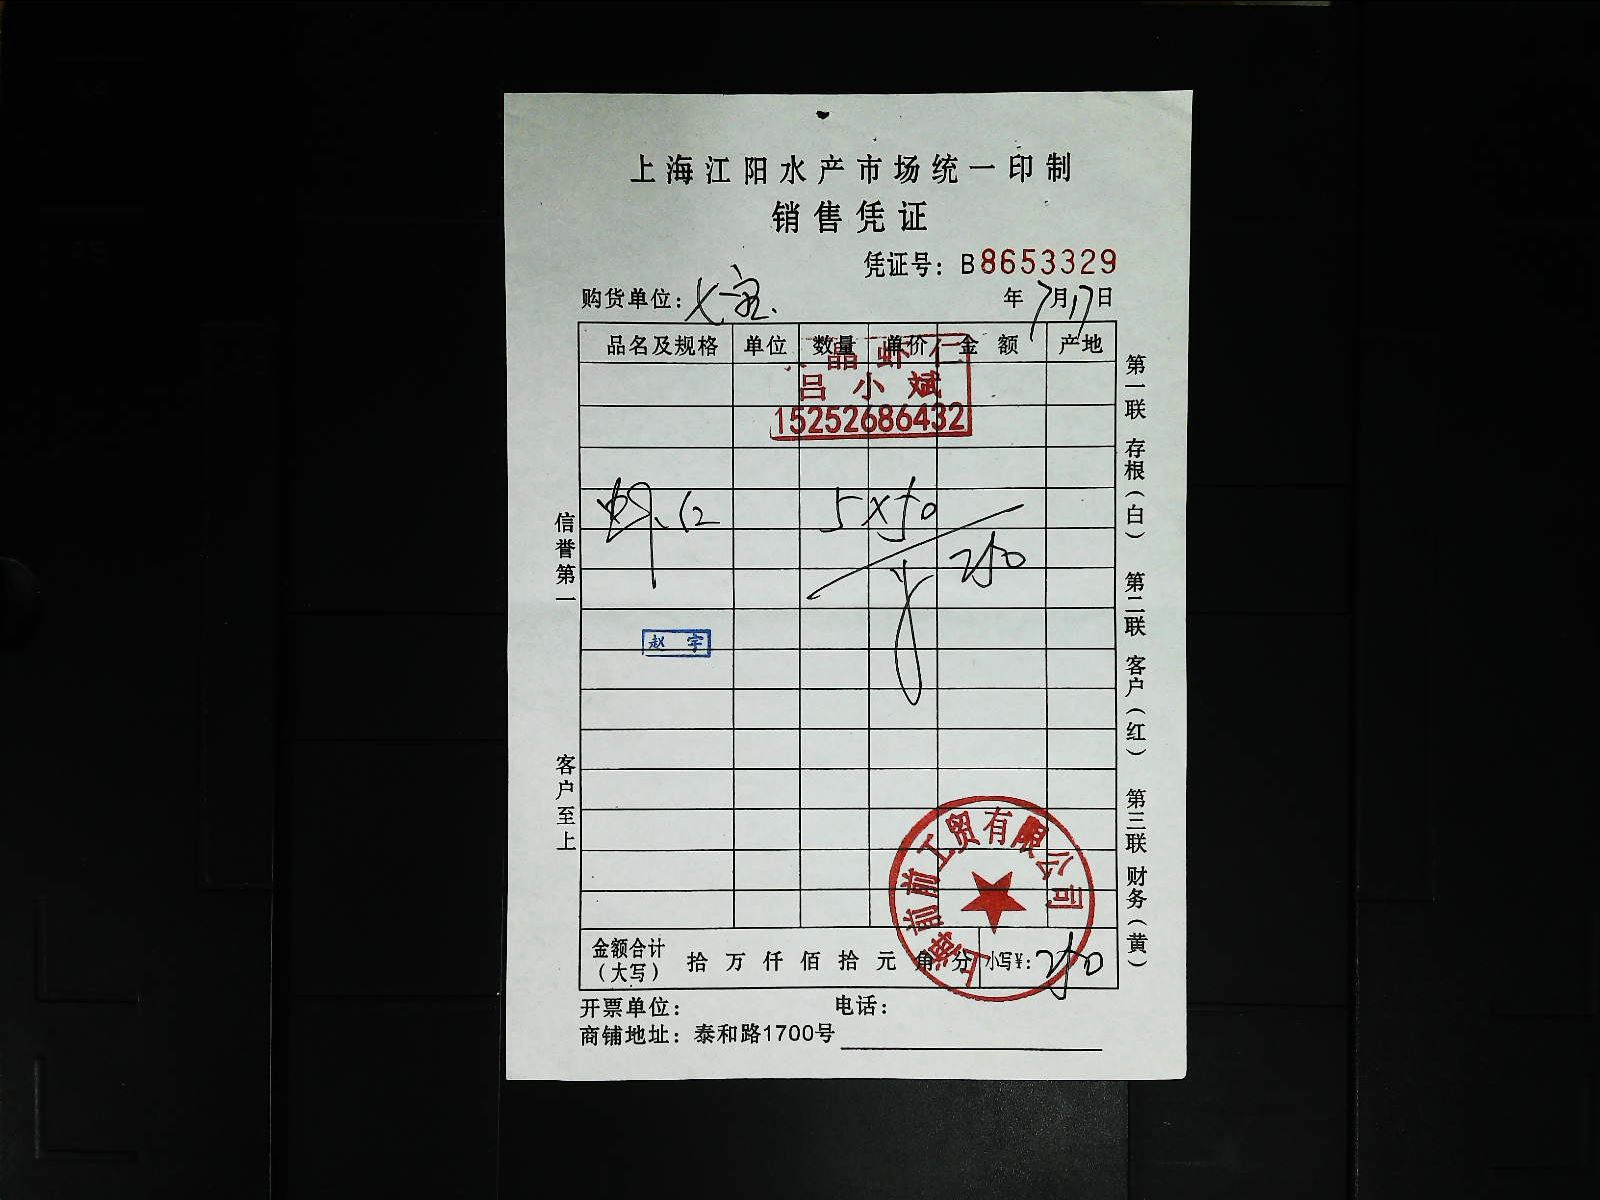 上海江阳水产市场统一印制
销售凭证
凭证号：B8653329
购货单位： 年7月17日
品名及规格 单位 数量 单价 金额 产地
晶虾仁
吕小斌
15252686432
虾仁 5×50
250
赵宇
信誉第一
客户至上
第一联 存根（白） 第二联 客户（红） 第三联 财务（黄）
上海前前工贸有限公司
金额合计（大写） 拾 万 仟 佰 拾 元 角 分 小写¥：250
开票单位： 电话：
商铺地址：泰和路1700号